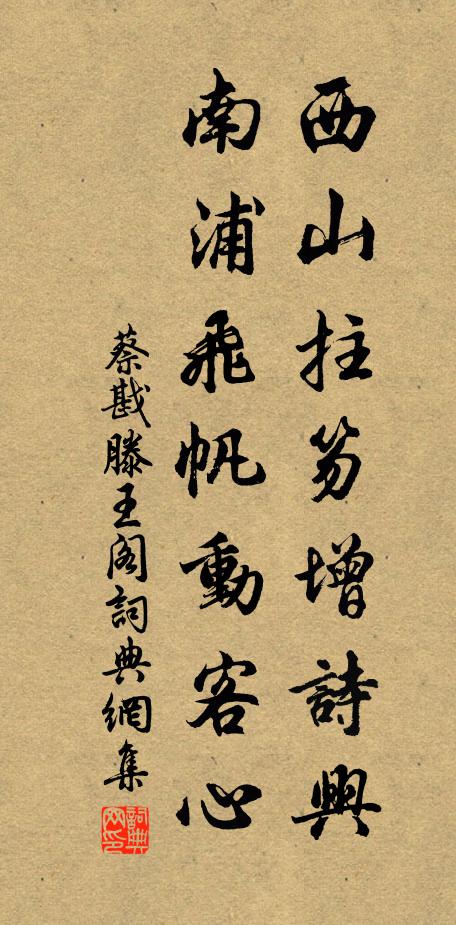 西山拄笏增詩興
南浦飛帆動客心
蔡戡滕王阁詞典網集
詞典网印